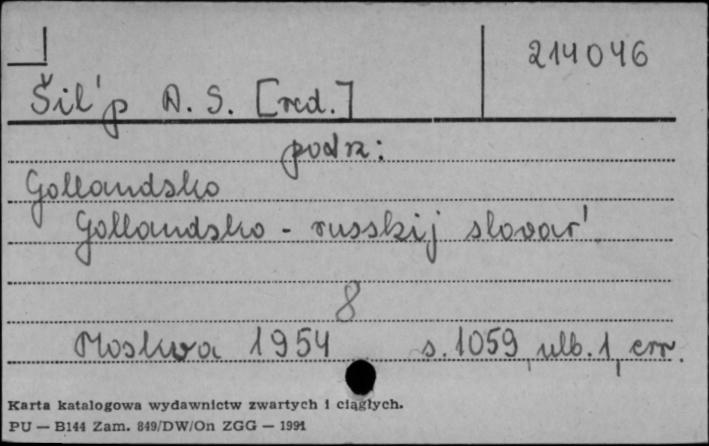 214046
Šil'p A. S. [red.]
podrz:
Gollandsko
Gollandsko - russkij slovar'
8
Moskva 1954 s. 1059, ulb. 1, err.
Karta katalogowa wydawnictw zwartych i ciągłych.
PU — B144 Zam. 849/DW/On ZGG — 1991